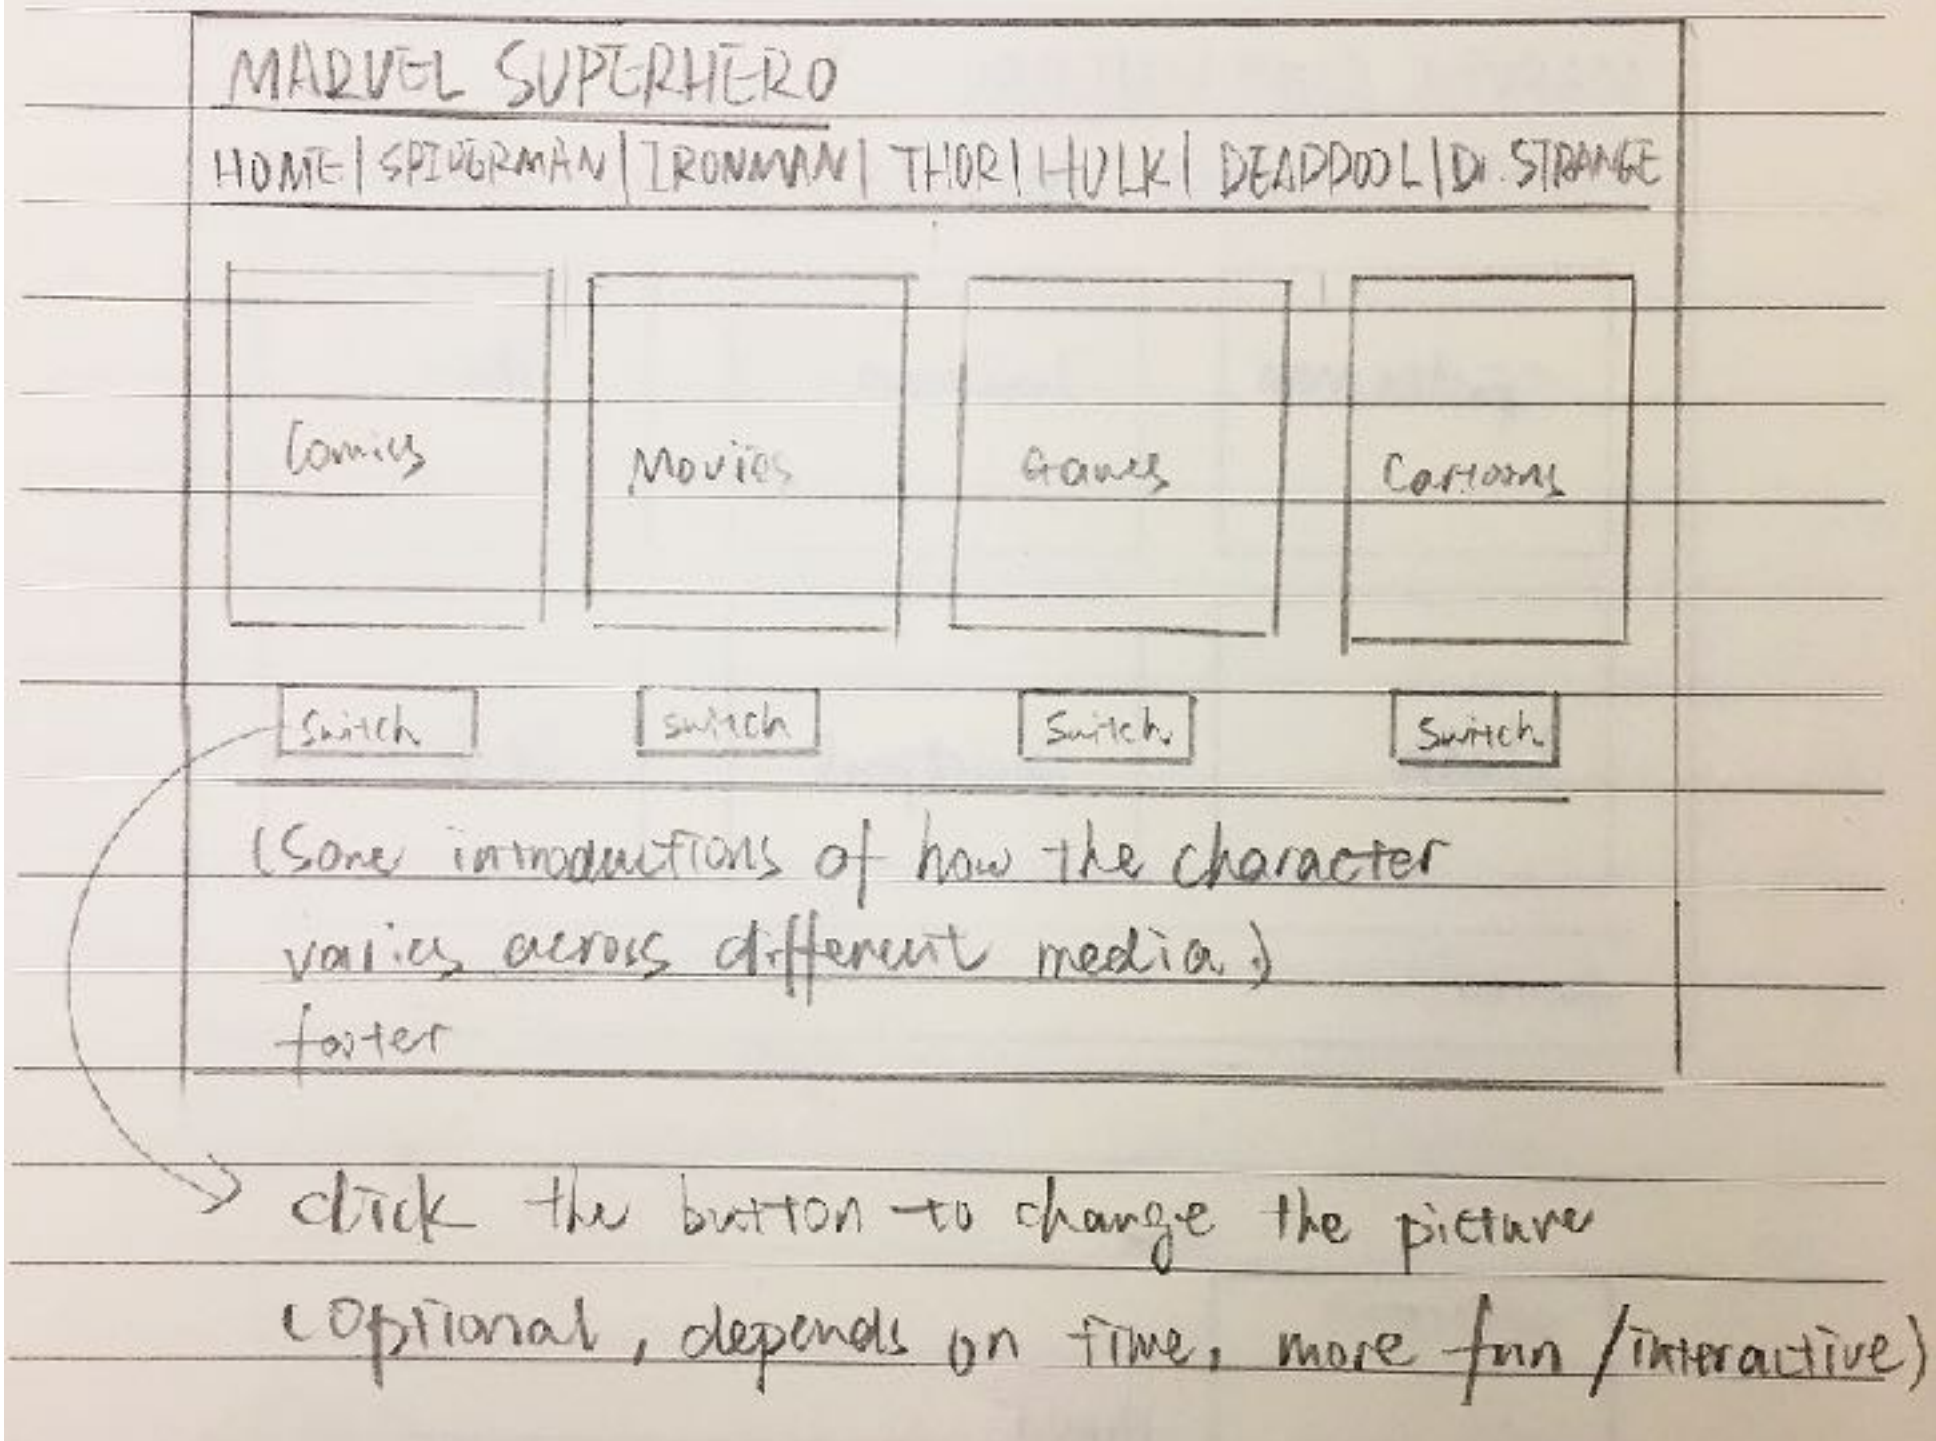 MARVEL SUPERHERO
HOME | SPIDERMAN | IRONMAN | THOR | HULK | DEADPOOL | Dr. STRANGE
Comics Movies Games Cartoons
Switch switch Switch Switch
(Some introductions of how the character
varies across different media.)
footer
click the button to change the picture
(optional, depends on time, more fun / interactive)